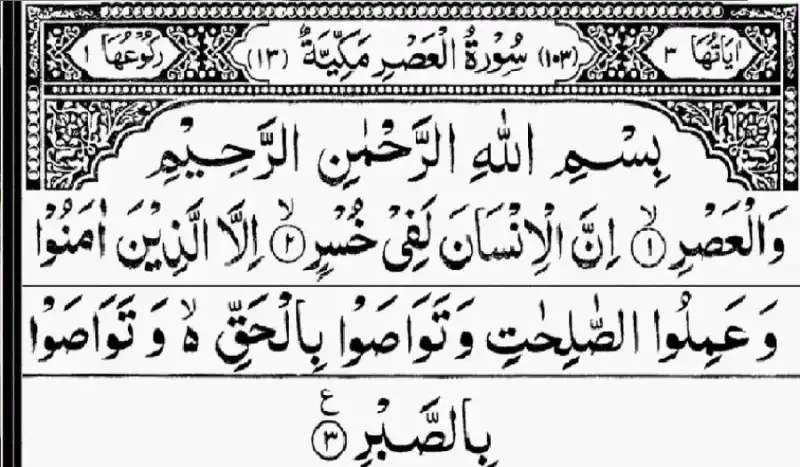 اٰيَاتُهَا ٣ (١٠٣) سُوْرَةُ الْعَصْرِ مَكِّيَّةٌ (١٣) رُكُوْعُهَا ١
بِسْمِ اللّٰهِ الرَّحْمٰنِ الرَّحِيْمِ
وَالْعَصْرِ ۙ﴿١﴾ اِنَّ الْاِنْسَانَ لَفِىْ خُسْرٍ ۙ﴿٢﴾ اِلَّا الَّذِيْنَ اٰمَنُوْا
وَ عَمِلُوا الصّٰلِحٰتِ وَتَوَاصَوْا بِالْحَقِّ ۙ۬ وَ تَوَاصَوْا
بِالصَّبْرِ ﴿٣﴾ ع